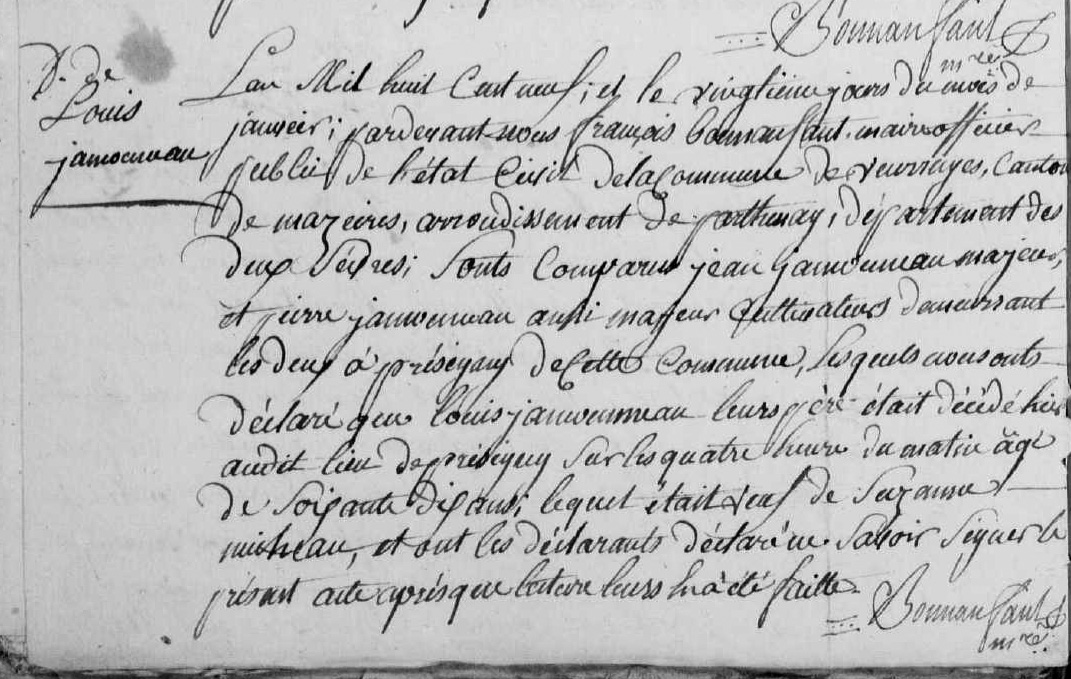 Bonnanfant
mre
D. de
Louis
jamonneau
Lan Mil huit Cent neuf; et le vingtieme jours du mois de
janvier; pardevant nous françois bonnanfant maire officier
publié de l'état Civil delaCommune de verruyes, Canton
de mazieres, arrondissement de parthenay, département des
deux Sevres; Sonts Comparus jean jamonneau majeur,
et pierre jamonneau aussi majeur Cultivateurs demeurrant
les deux à présigny deCette Commune, lesquels nous onts
déclaré que louis jamonneau leurs père était décédé hier
audit lieu deprésigny sur les quatre heure du matin âgé
de Soixante dix ans; lequel était veuf de Suzanne
micheau, et ont les déclarants déclaré ne Savoir Signer le
présent acte après que lecture leurs en à été faitte.
Bonnanfant
mre